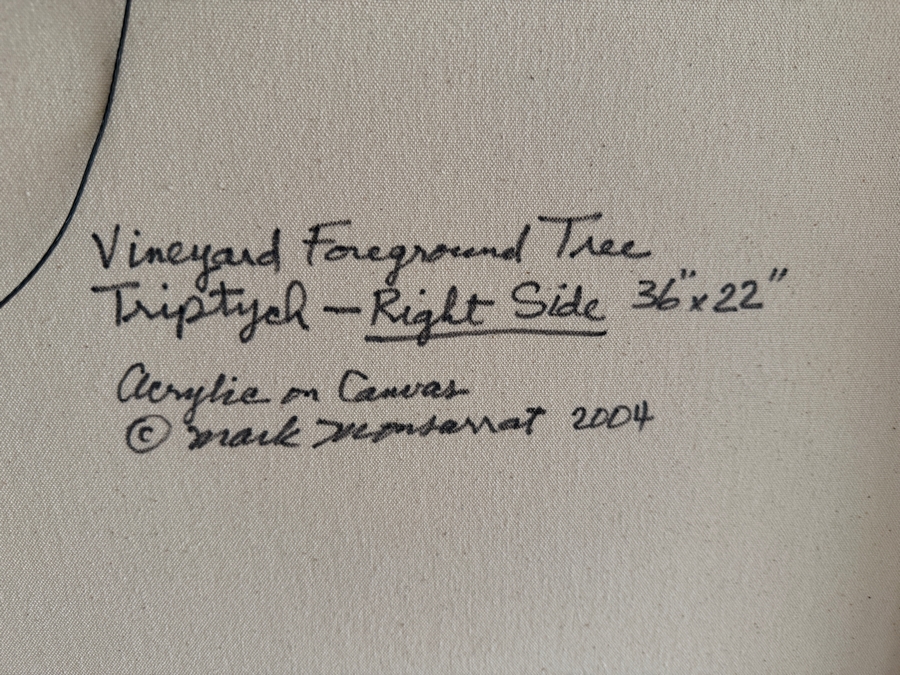 Vineyard Foreground Tree
Triptych – Right Side 36" x 22"
Acrylic on Canvas
© Mark Monsarrat 2004